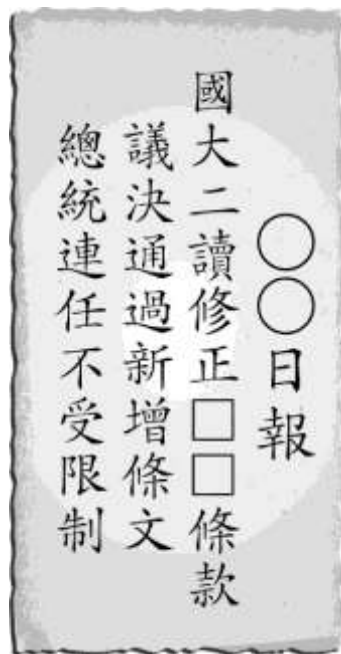 ○○日報
國大二讀修正□□條款
議決通過新增條文
總統連任不受限制